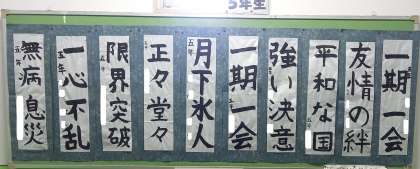 5年生
一期一会
友情の絆
平和な国
強い決意
一期一会
月下氷人
五年
正々堂々
限界突破
五年
一心不乱
五年
無病息災
五年